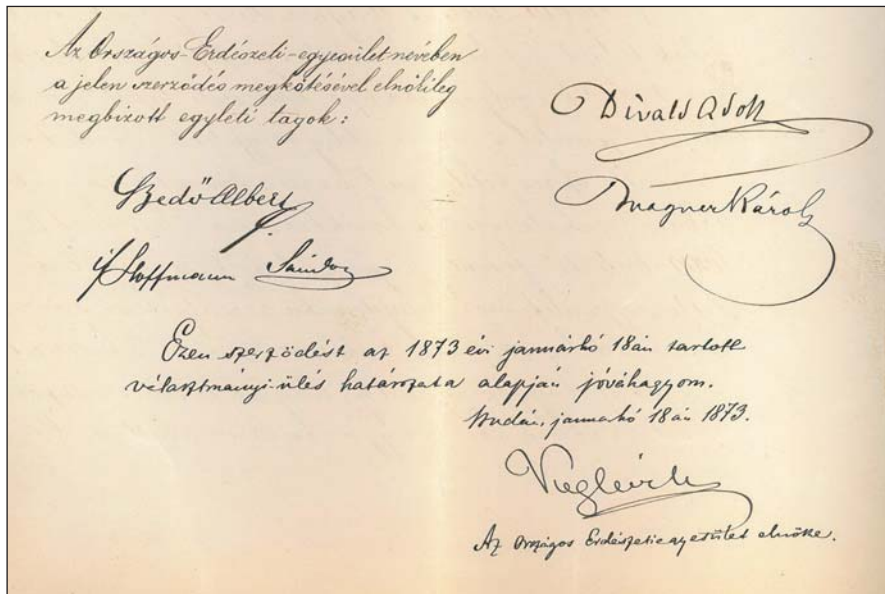 Az Országos-Erdészeti-egyesület nevében
a jelen szerződés megkötésével elnökileg
megbizott egyleti tagok:
Divald Adolf
Bedő Albert
Wagner Károly
if Hoffmann Sándor
Ezen szerződést az 1873 évi januárhó 18án tartott
választmányi-ülés határozata alapján jóváhagyom.
Budán, januarhó 18án 1873.
Az Országos Erdészeti egyesület elnöke.